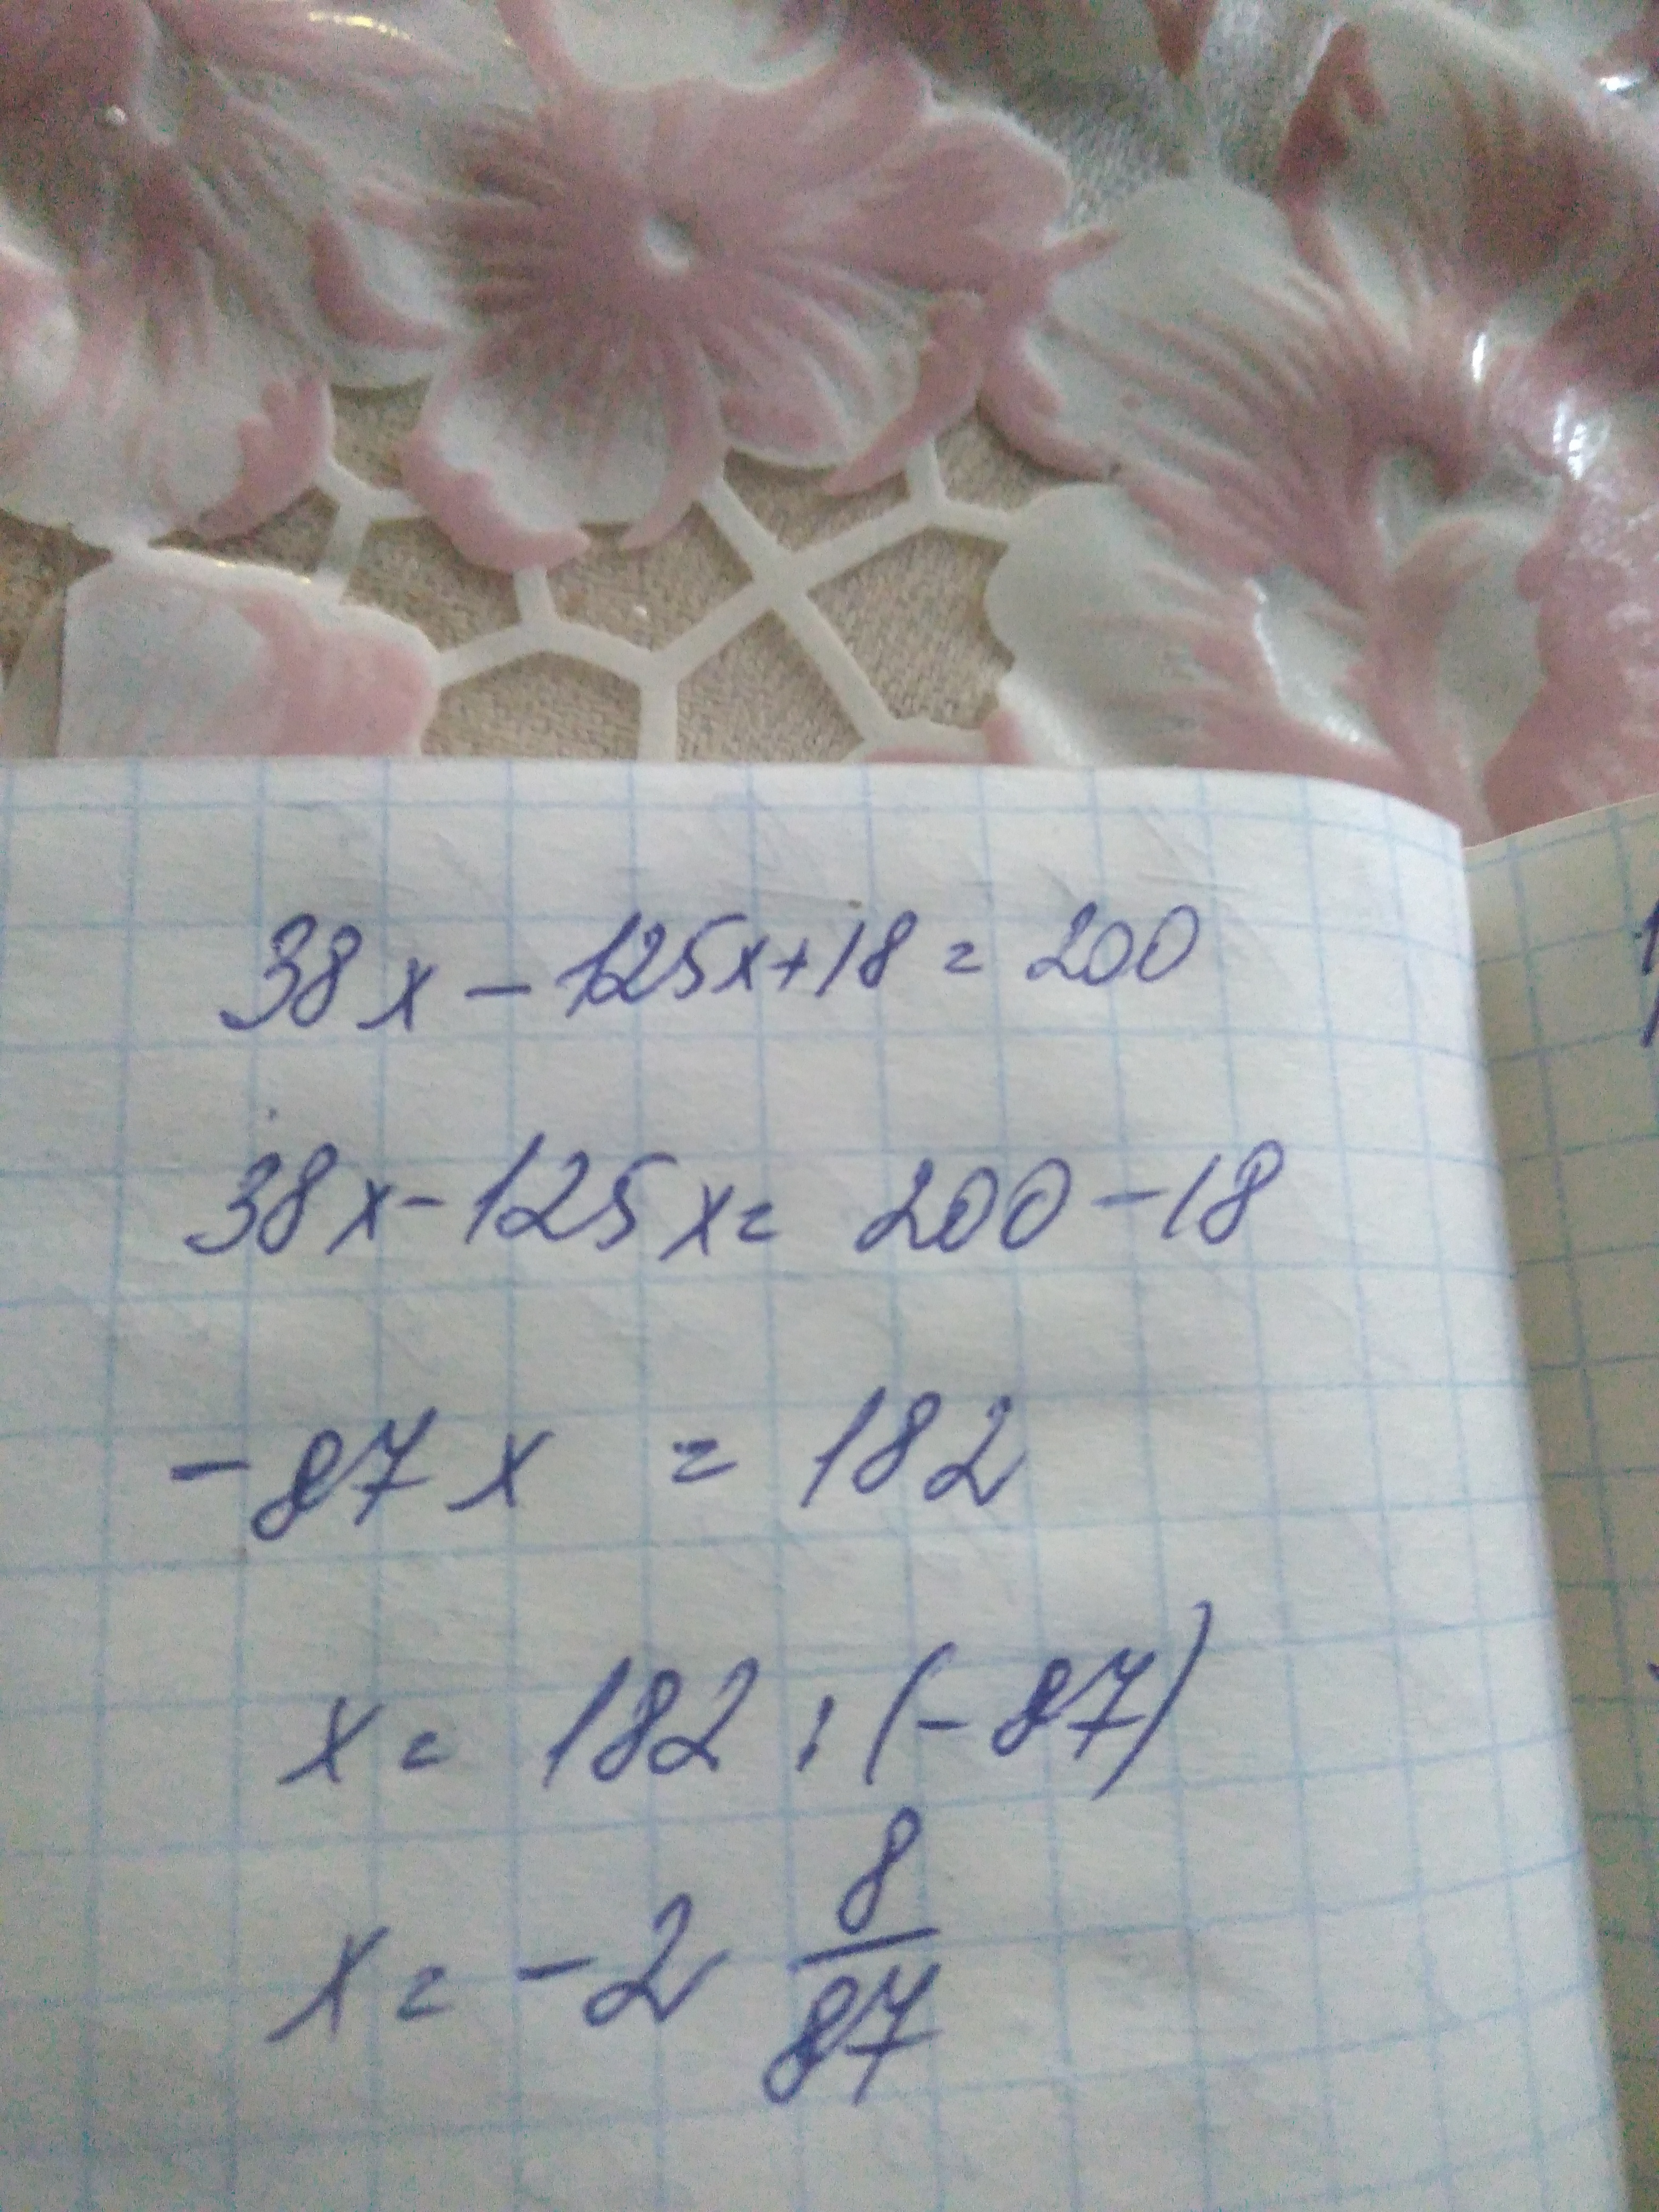 38x - 125x + 18 = 200
38x - 125x = 200 - 18
-87x = 182
x = 182 : (-87)
x = -2 8/87